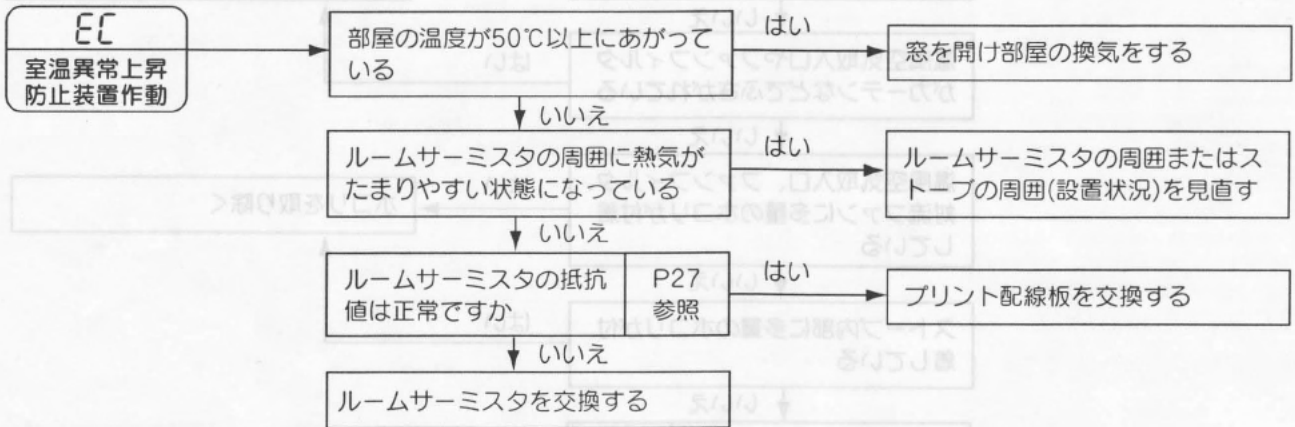 EC
室温異常上昇
防止装置作動
部屋の温度が50℃以上にあがって
いる
はい
窓を開け部屋の換気をする
いいえ
ルームサーミスタの周囲に熱気が
たまりやすい状態になっている
はい
ルームサーミスタの周囲またはス
トーブの周囲(設置状況)を見直す
いいえ
ルームサーミスタの抵抗
値は正常ですか
P27
参照
はい
プリント配線板を交換する
いいえ
ルームサーミスタを交換する